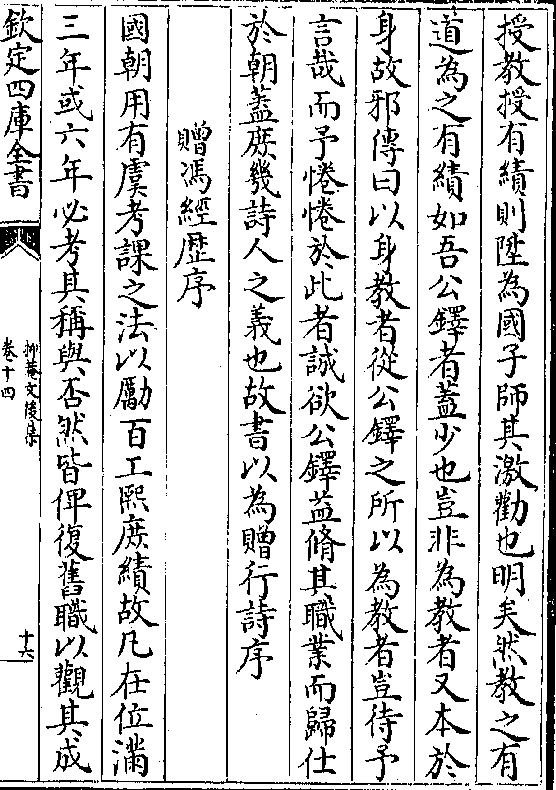 授教授有績則陞為國子師其激勸也明矣然教之有
道為之有績如吾公鐸者蓋少也豈非為教者又本於
身故邪傳曰以身教者從公鐸之所以為教者豈待予
言哉而予惓惓於此者誠欲公鐸益脩其職業而歸仕
於朝蓋庶幾詩人之義也故書以為贈行詩序
贈馮經歷序
國朝用有虞考課之法以勵百工熙庶績故凡在位滿
三年或六年必考其稱與否然皆俾復舊職以觀其成
欽定四庫全書
抑菴文後集
卷十四
十六